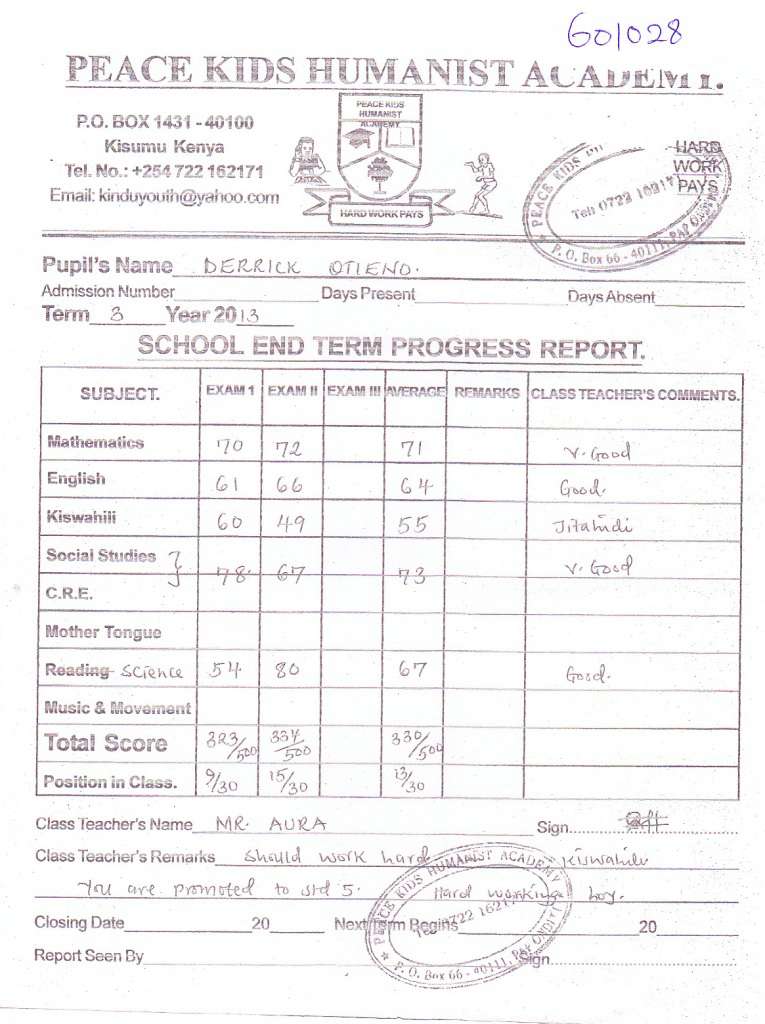 601028
PEACE KIDS HUMANIST ACADEMY.
P.O. BOX 1431 - 40100
Kisumu Kenya
Tel. No.: +254 722 162171
Email: kinduyouth@yahoo.com
PEACE KIDS
HUMANIST
ACADEMY
HARD WORK PAYS
HARD
WORK
PAYS
PEACE KIDS
Tel: 0722 16217
P. O. Box 66 - 40111, PAP
Pupil's Name DERRICK OTIENO.
Admission Number Days Present Days Absent
Term 3 Year 2013
SCHOOL END TERM PROGRESS REPORT.
SUBJECT. EXAM 1 EXAM II EXAM III AVERAGE REMARKS CLASS TEACHER'S COMMENTS.
Mathematics 70 72 71 V. Good
English 61 66 64 Good.
Kiswahili 60 49 55 Jitahidi
Social Studies } 78. 67 73 V. Good
C.R.E.
Mother Tongue
Reading Science 54 80 67 Good.
Music & Movement
Total Score 323/500 334/500 330/500
Position in Class. 9/30 15/30 13/30
Class Teacher's Name MR. AURA Sign
Class Teacher's Remarks Should work hard Kiswahili
You are promoted to std 5. Hard working boy.
PEACE KIDS HUMANIST ACADEMY
Tel 0722 1621
P. O. Box 66 - 40111, PAP ONDITI
Closing Date 20 Next Term Begins 20
Report Seen By Sign